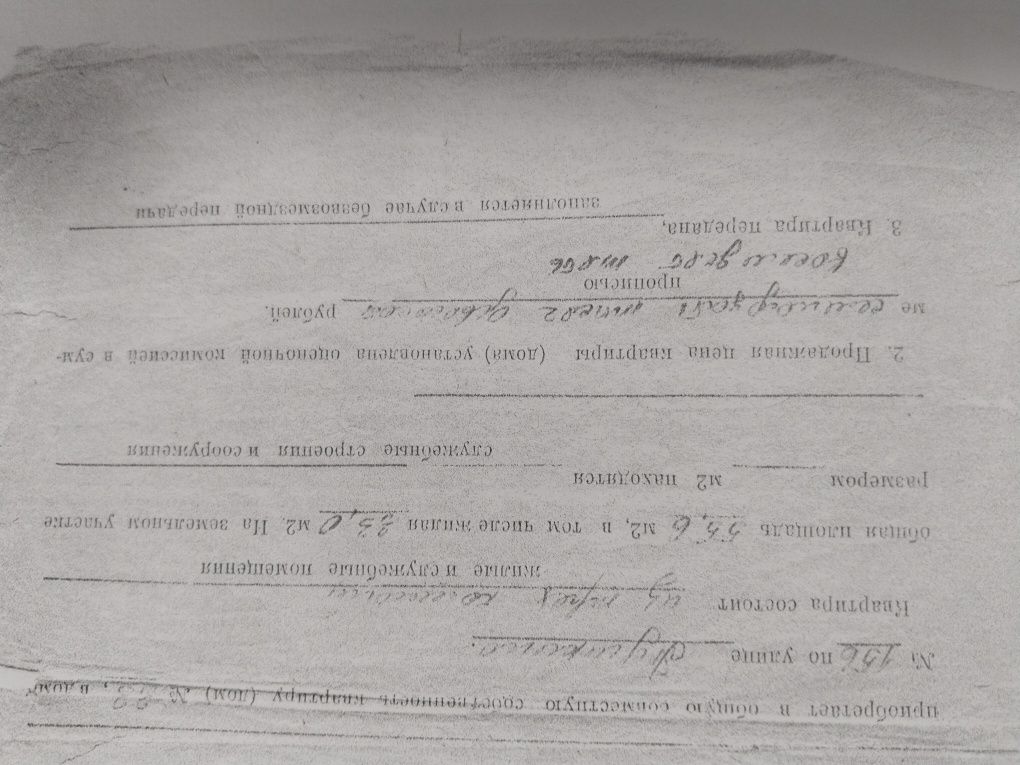 приобретает в общую совместную собственность квартиру (дом) № , в доме
№ 156 по улице Пушкина.
Квартира состоит из трёх комнат
жилые и служебные помещения
общая площадь 55,6 м2, в том числе жилая 35,0 м2. На земельном участке
размером м2 находятся
служебные строения и сооружения
2. Продажная цена квартиры (дома) установлена оценочной комиссией в сум-
ме рублей.
прописью
3. Квартира передана,
заполняется в случае безвозмездной передачи